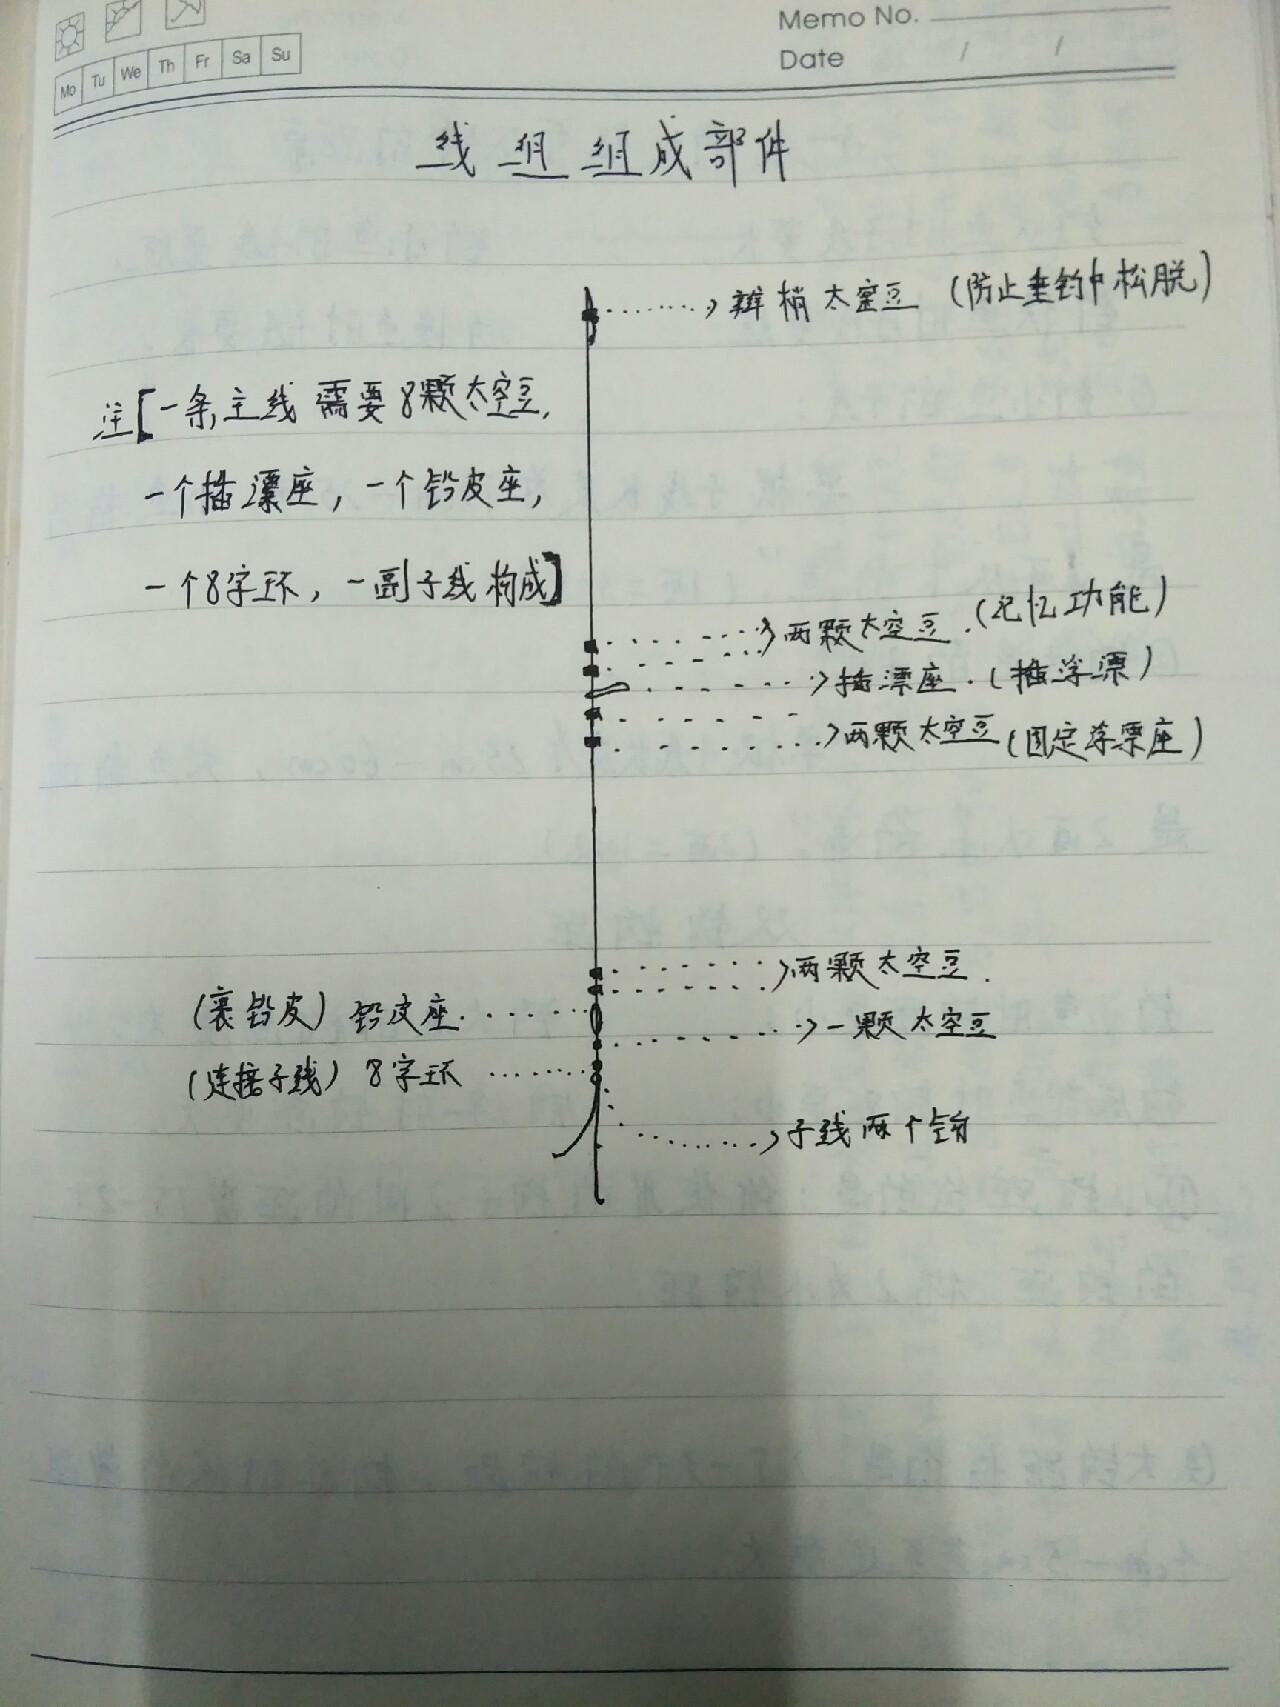 Memo No.
Mo Tu We Th Fr Sa Su
Date / /
线组组成部件
辫梢太空豆 (防止垂钓中松脱)
注[一条主线需要8颗太空豆,
一个插漂座, 一个铅皮座,
一个8字环, 一副子线构成]
两颗太空豆.(记忆功能)
插漂座.(插浮漂)
两颗太空豆(固定浮票座)
两颗太空豆.
(裹铅皮) 铅皮座
一颗太空豆
(连接子线) 8字环
子线两个钩